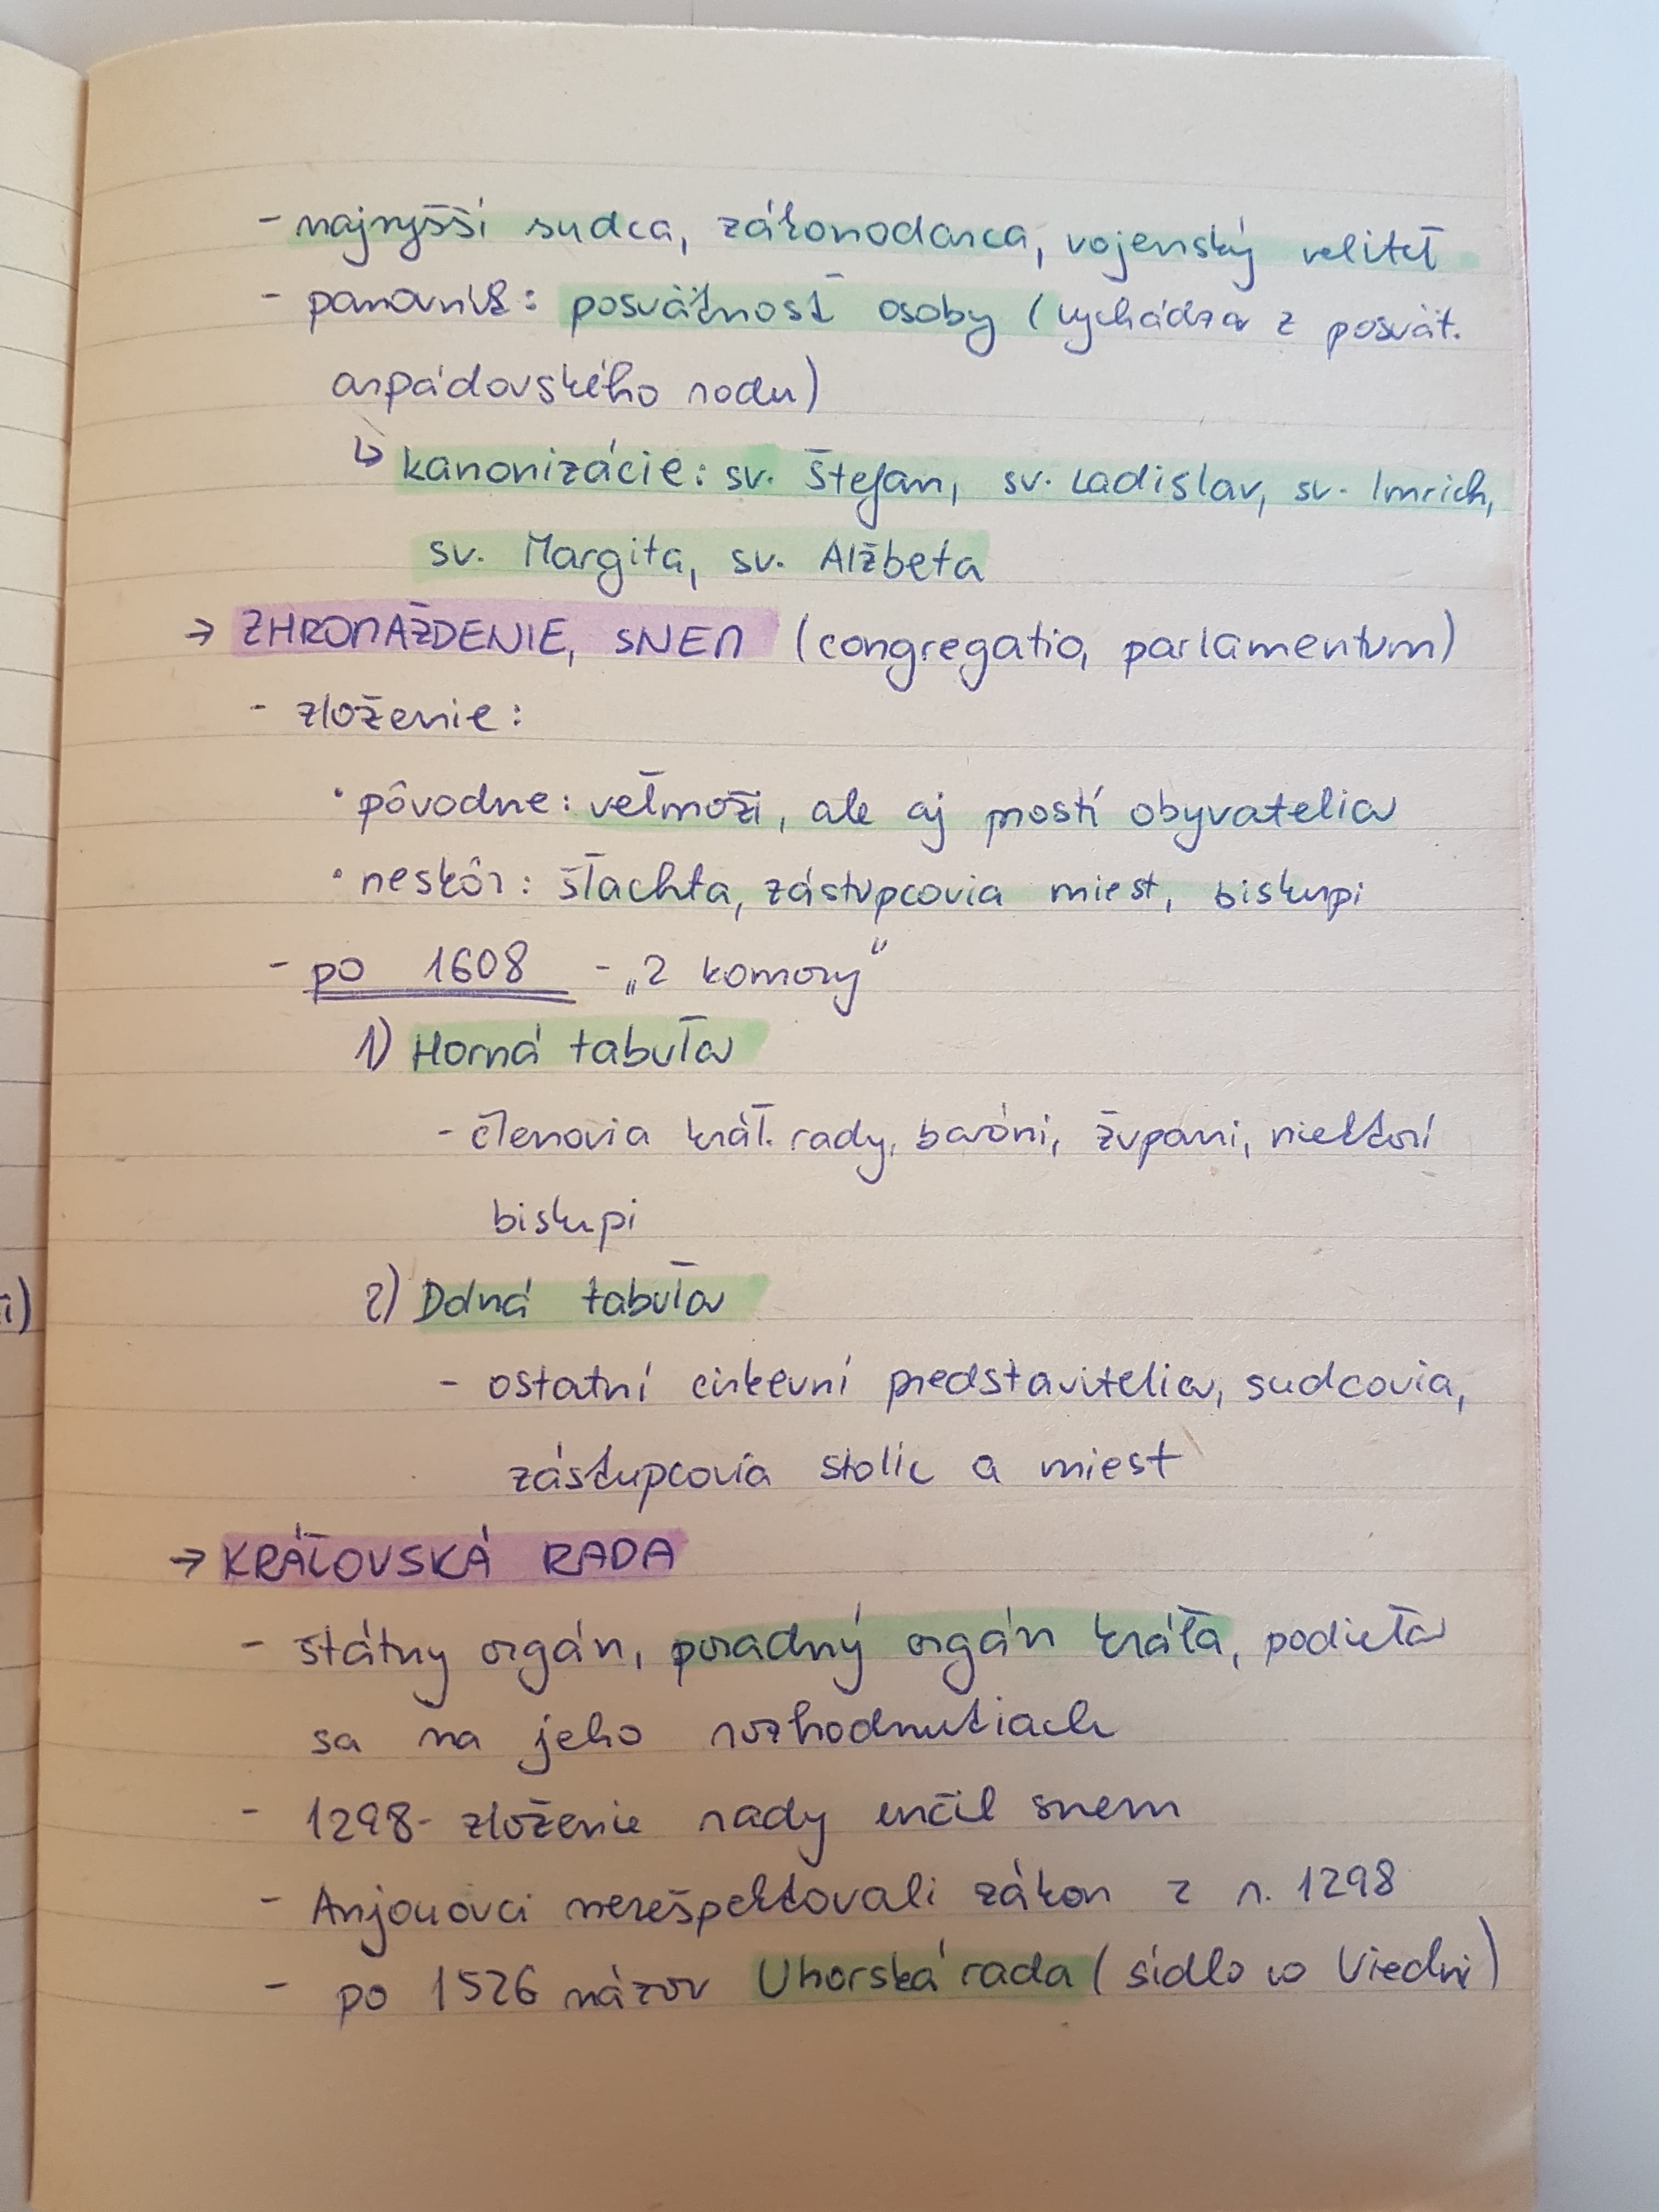 - najvyšší sudca, zákonodarca, vojenský veliteľ
- panovník: posvätnosť osoby (vychádza z posvät.
arpádovského rodu)
↳ kanonizácie: sv. Štefan, sv. Ladislav, sv. Imrich,
sv. Margita, sv. Alžbeta
→ ZHROMAŽDENIE, SNEM (congregatio, parlamentum)
- zloženie:
• pôvodne: veľmoži, ale aj prostí obyvatelia
• neskôr: šľachta, zástupcovia miest, biskupi
- po 1608 - „2 komory“
1) Horná tabuľa
- členovia kráľ. rady, baróni, župani, niektorí
biskupi
2) Dolná tabuľa
- ostatní cirkevní predstavitelia, sudcovia,
zástupcovia stolíc a miest
→ KRÁĽOVSKÁ RADA
- štátny orgán, poradný orgán kráľa, podieľa
sa na jeho rozhodnutiach
- 1298- zloženie rady určil snem
- Anjouovci nerešpektovali zákon z r. 1298
- po 1526 názov Uhorská rada (sídlo vo Viedni)